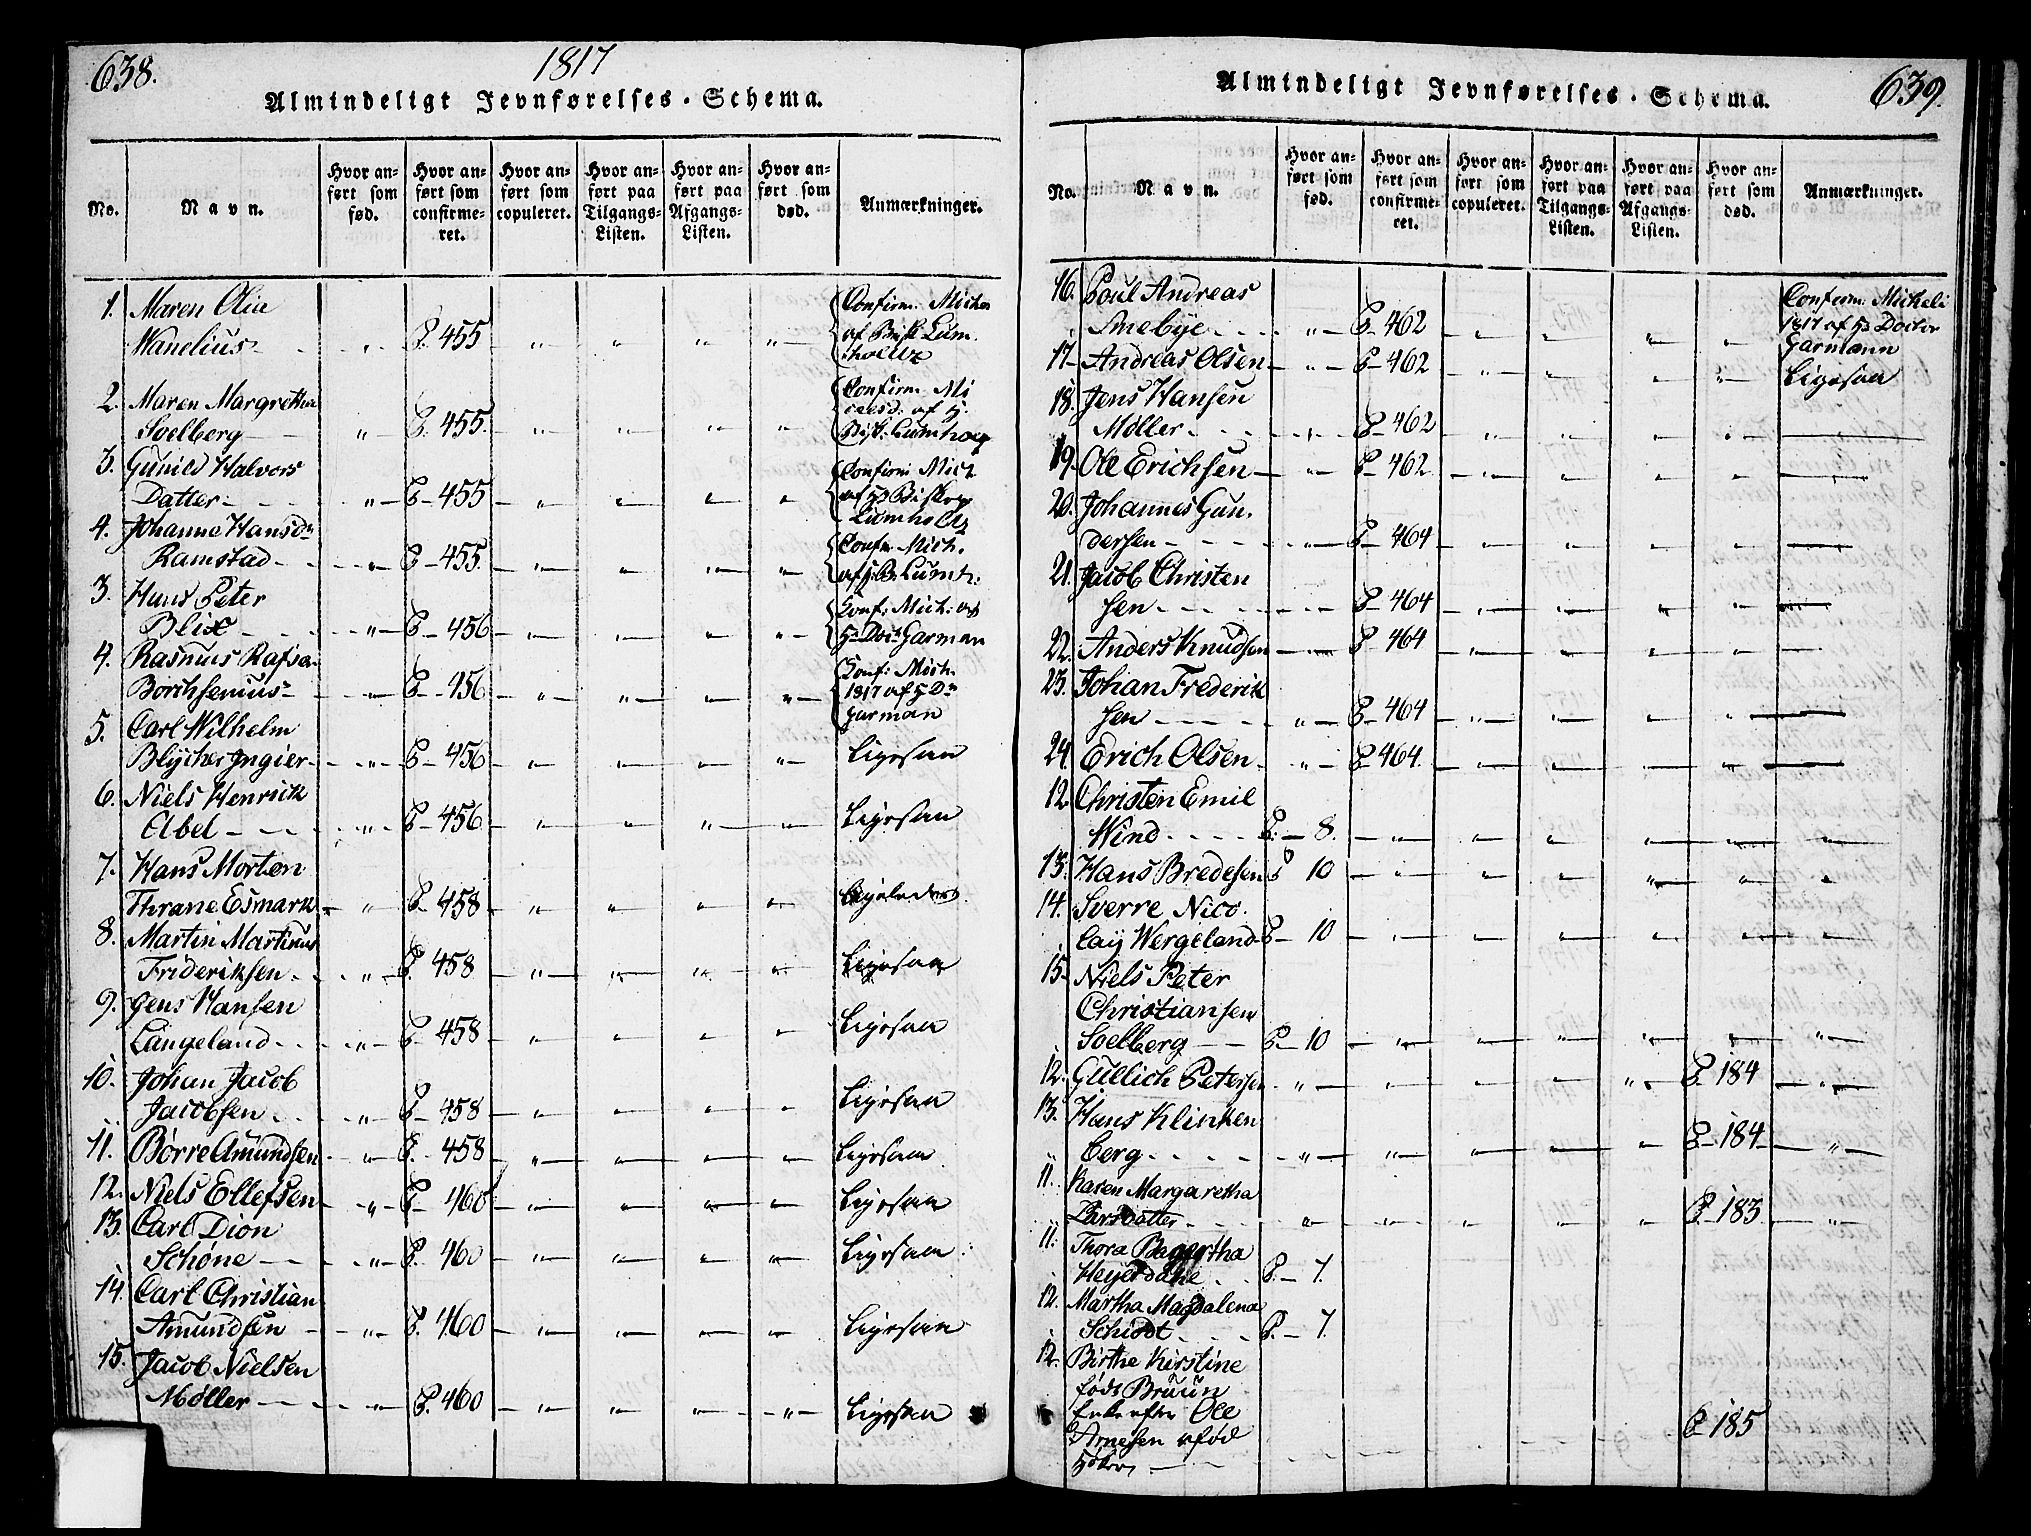 638.
1817
Almindeligt Jevnførelses-Schema.
No.
Navn.
Hvor an-
ført som
fød.
Hvor an-
ført som
confirme-
ret.
Hvor an-
ført som
copuleret.
Hvor an-
ført paa
Tilgangs-
Listen.
Hvor an-
ført paa
Afgangs-
Listen.
Hvor an-
ført som
død.
Anmærkninger.
1. Maren Olia Confirm. Mich
Wanelius P. 455 af Bisk Lum-
holtz
2. Maren Margretha Confirm. Mi
Soelberg P. 455.
Bisk. Lumhol
3. Gunild Halvors Confirm Mich
Datter P 455 af H Biskop
Lumholtz
4. Johanne Hansdr Confr. Mich.
Ramstad P 455. af H. B. Lumh:
3. Hans Peter Conf: Mich: af
Blix P 456 Hr Doct Garman
4. Rasmus Rafsa Conf: Mich.
Borchsenius P 456 1817 af H Dr
Garman
5. Carl Wilhelm
Blÿcher Ingier P 456 Ligesaa
6. Niels Henrick
Abel P 456 Ligesaa
7. Hans Morten
Thrane Esmark P 458 Ligeledes
8. Martin Martinus
Frideriksen P. 458 Ligesaa
9. Jens Hansen
Langeland P 458 Ligesaa
10. Johan Jacob
Jacobsen P 458 Ligesaa
11. Børre Amundsen P. 458 Ligesaa
12. Niels Ellefsen P 460 Ligesaa
13. Carl Dion
Schøne P. 460 Ligesaa
14. Carl Christian
Amundsen P. 460 Ligesaa
15. Jacob Nielsen
Møller P. 460 Ligesaa
Almindeligt Jevnførelses-Schema.
639.
No.
Navn.
Hvor an-
ført som
fød.
Hvor an-
ført som
confirme-
ret.
Hvor an-
ført som
copuleret.
Hvor an-
ført paa
Tilgangs-
Listen.
Hvor an-
ført paa
Afgangs-
Listen.
Hvor an-
ført som
død.
Anmærkninger.
16. Poul Andreas Confirm: Micheli
Smebÿe P 462 1817 af H Doctor
Garmann
17 Andreas Olsen P 462 Ligesaa
18. Jens Hansen
Møller P 462
19. Ole Erichsen P 462
20. Johannes Gun-
dersen P 464
21. Jacob Christen
sen P 464
22. Anders Knudsen P 464
23. Johan Frederik
sen P 464
24 Erich Olsen P 464.
12 Christen Emil
Wind P. 8.
13. Hans Bredesen P 10
14. Sverre Nico-
laÿ Wergeland P 10
15 Niels Peter
Christiansen
Soelberg P. 10
12. Gullich Petersen P. 184
13. Hans Klinken
berg P 184
11. Karen Margaretha
Larsdatter P. 183
11. Thora
Heyerdahl P. 7.
12. Martha Magdalena
Schiøt P. 7.
12. Birthe Kirstine
født Bruun
Enke efter Ole
Arnesen P 185